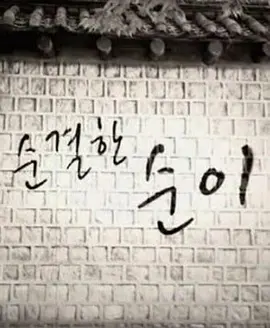 순결한
순이